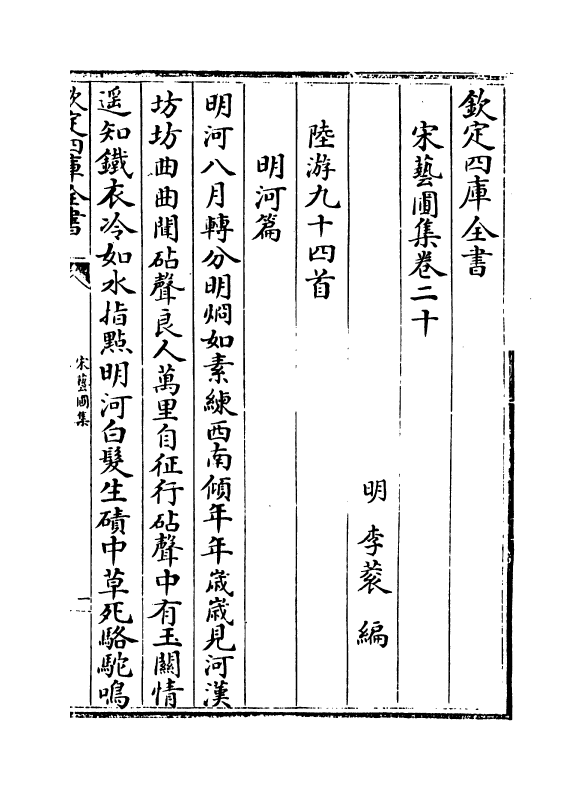 欽定四庫全書
宋藝圃集卷二十
明 李蓘 編
陸游九十四首
明河篇
明河八月轉分明炯如素練西南傾年年歲歲見河漢
坊坊曲曲聞砧聲良人萬里自征行砧聲中有玉關情
遥知鐵衣冷如水指點明河白髮生磧中草死駱駝鳴
欽定四庫全書
宋藝圃集
一